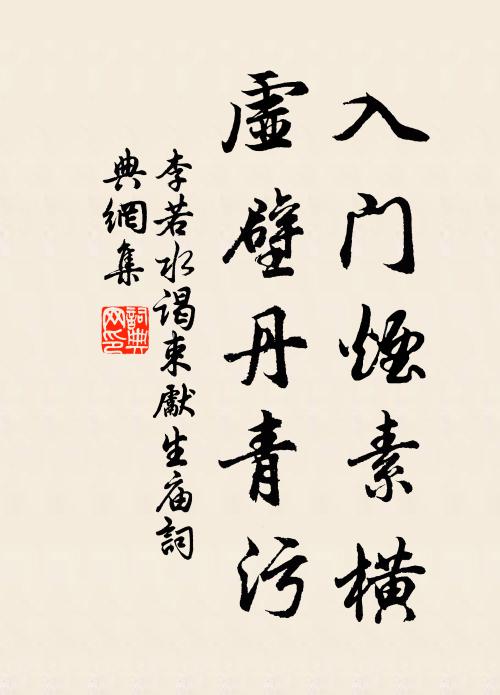 入门煙素橫
虛壁丹青污
李若水谒東獻生庙詞
典網集
詞典网印